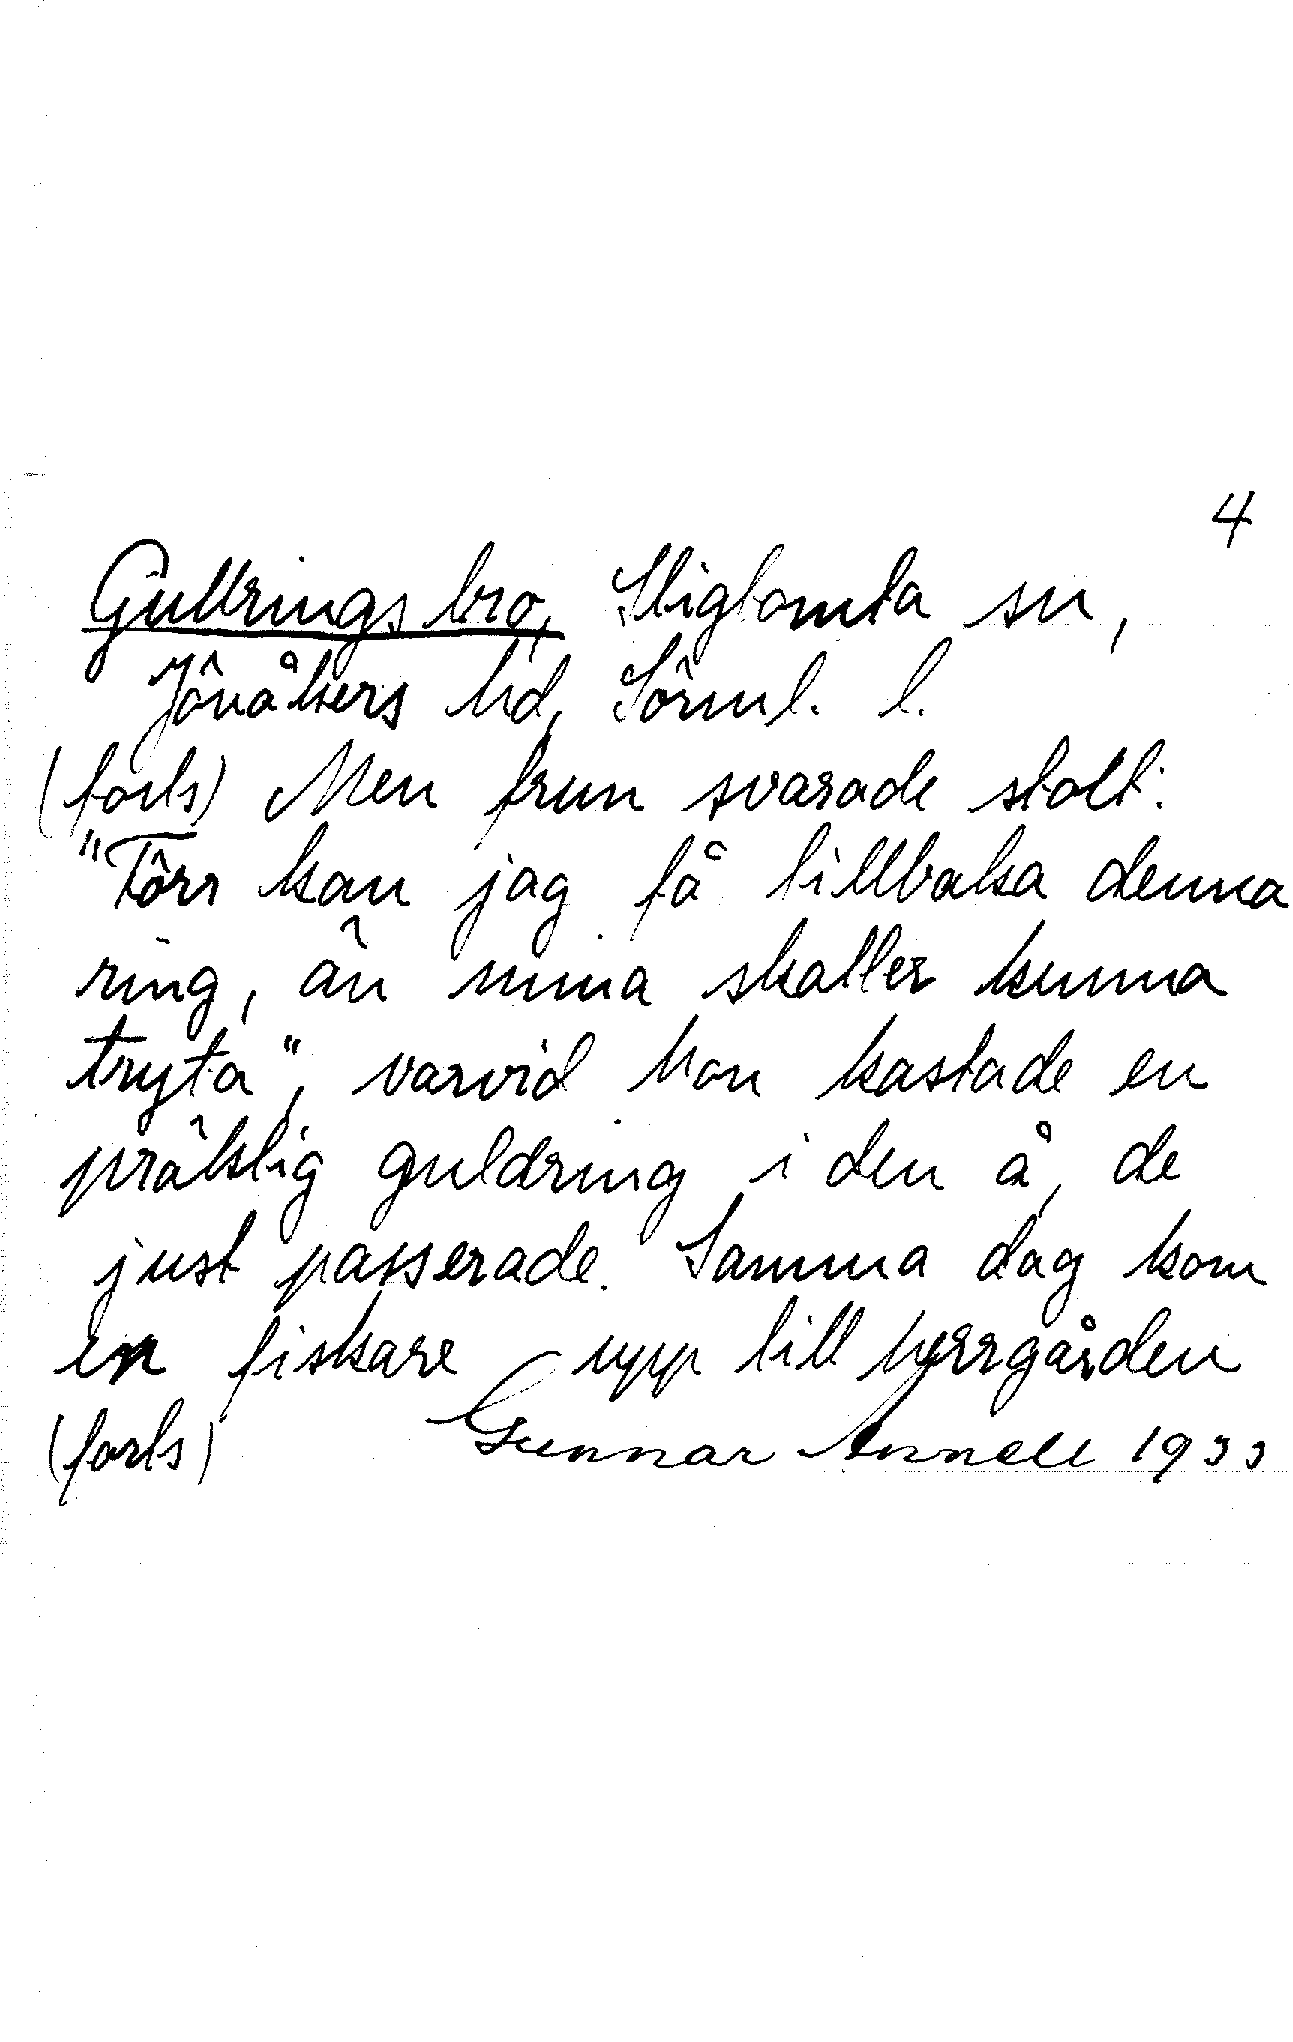 4
Gullringsbro, Stigtomta sn,
Jönåkers hd, Sörml. l.
(forts) Men frun svarade stolt:
"Förr kan jag få tillbaka denna
ring, än mina skatter kunna
tryta", varvid hon kastade en
präktig guldring i den å, de
just passerade. Samma dag kom
en fiskare upp till herrgården
(forts) Gunnar Annell 1933